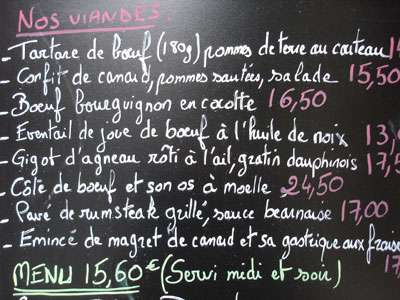 NOS VIANDES:
- Tartare de bœuf (180g) pommes de terre au couteau 1
- Confit de canard, pommes sautées, salade 15,50
- Bœuf bourguignon en cocotte 16,50
- Eventail de joue de bœuf à l'huile de noix 13,
- Gigot d'agneau rôti à l'ail, gratin dauphinois 17,5
- Côte de bœuf et son os à moelle 24,50
- Pavé de rumsteak grillé, sauce bearnaise 17,00
- Emincé de magret de canard et sa gastrique aux fraise
17
MENU 15,60€ (Servi midi et soir)